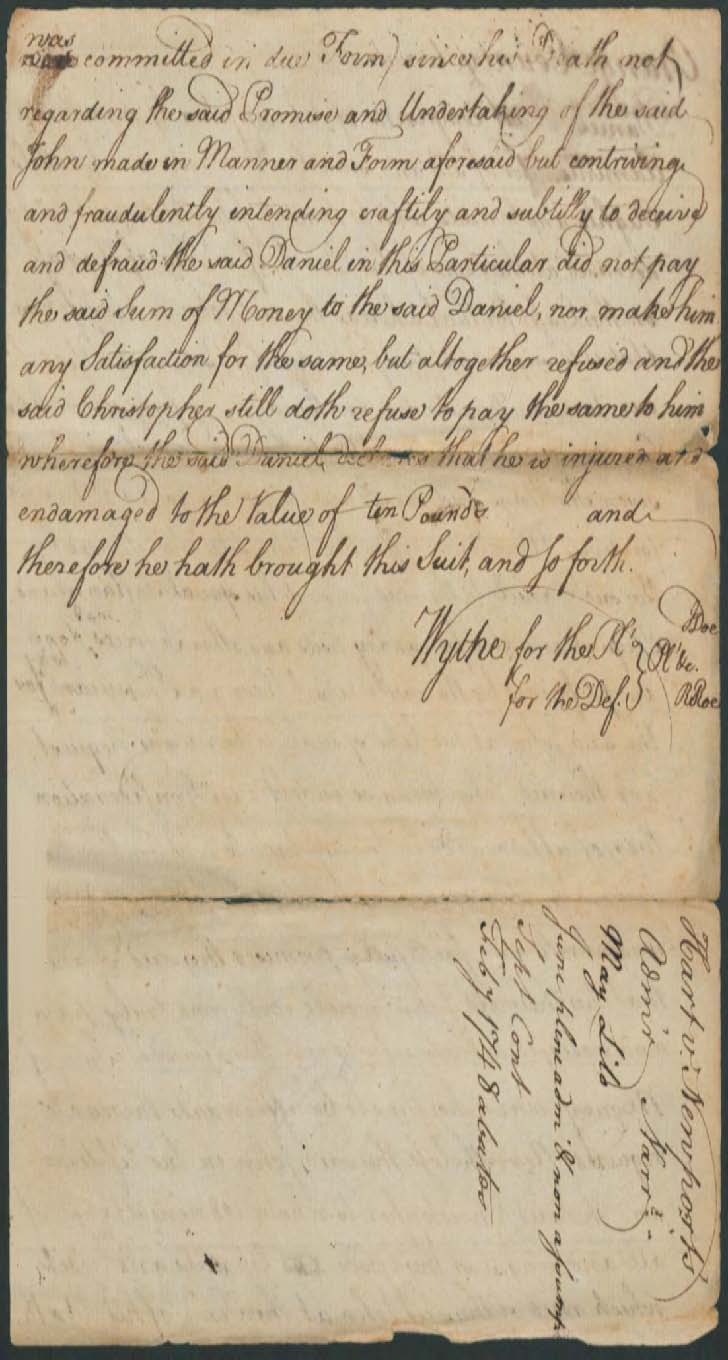 was
committed in due Form) since his Death not
regarding the said Promise and Undertaking of the said
John made in Manner and Form aforesaid but contriving
and fraudulently intending craftily and subtilly to deceive
and defraud the said Daniel in this Particular did not pay
the said Sum of Money to the said Daniel, nor make him
any Satisfaction for the same, but altogether refused and the
said Christopher still doth refuse to pay the same to him
wherefore the said Daniel declares that he is injured and
endamaged to the Value of ten Pounds and
therefore he hath brought this Suit, and so forth.
Wythe for the Pl.
for the Def.
Doe
Pl. &c.
R Roe
Hart v. Newport's
Adm'r Narr.
May Lib
June plene adm. & non assump
Sept Cont
Feb'y 1748 abates